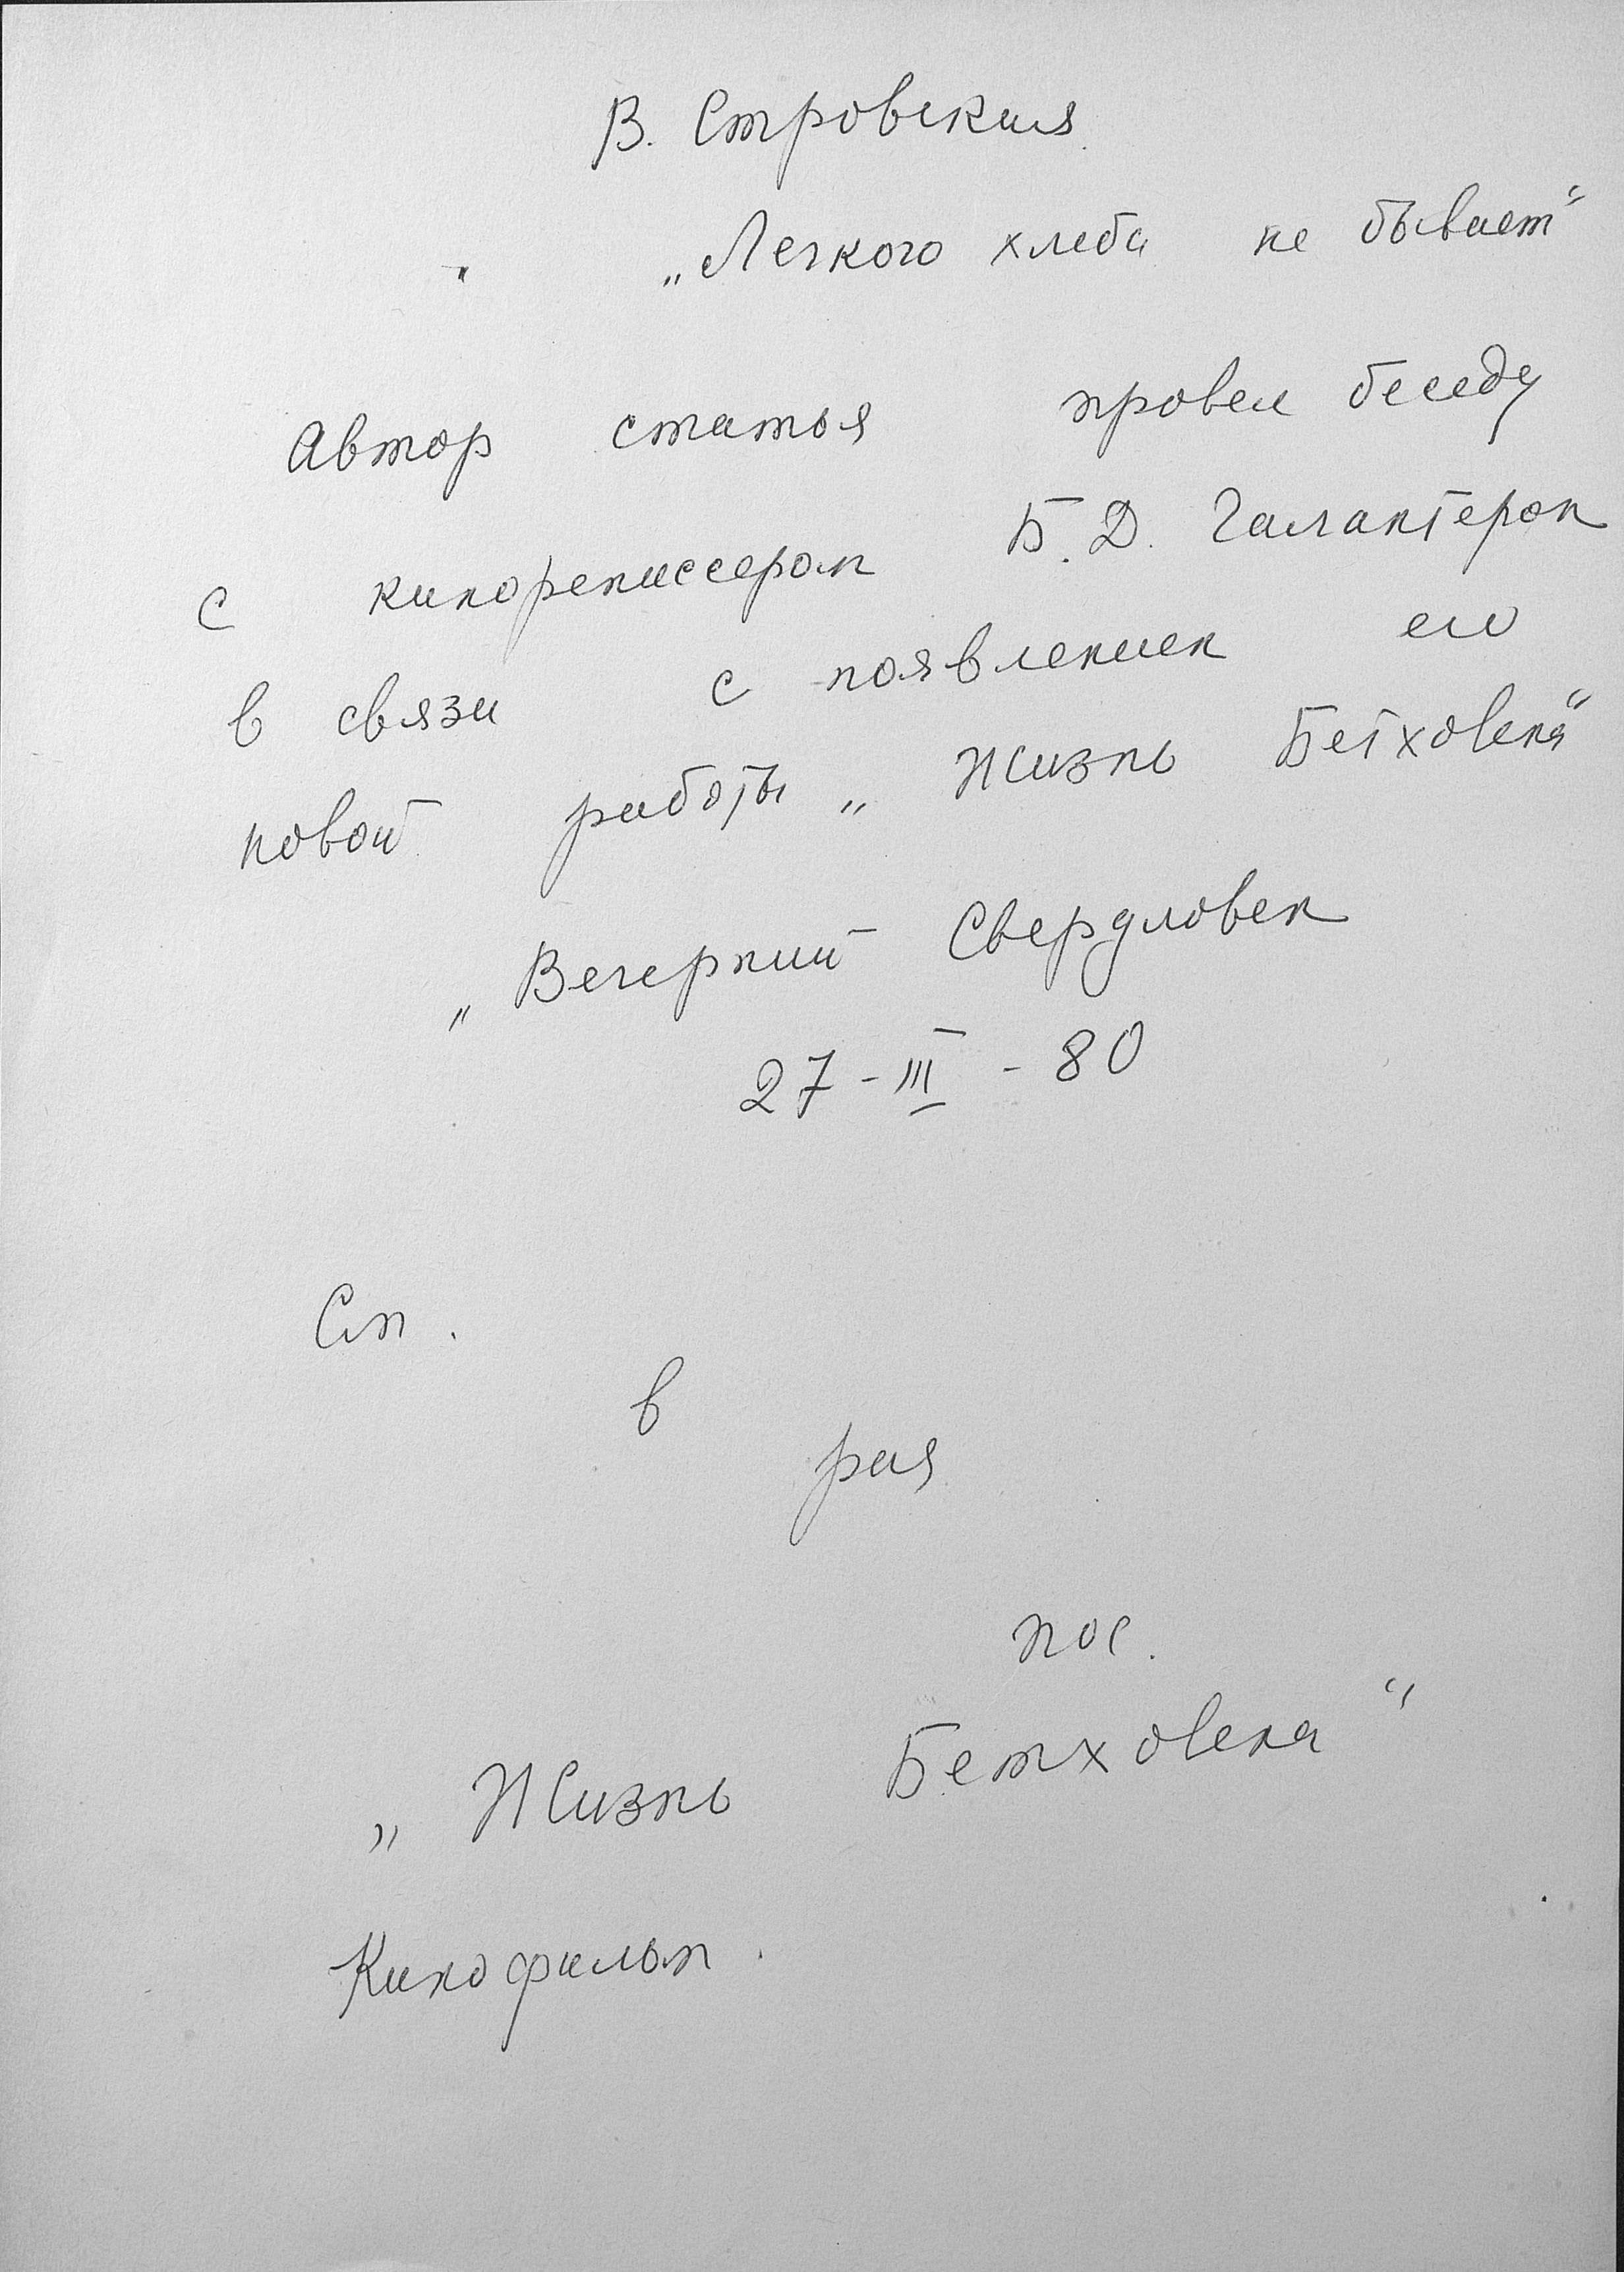 В. Стровский
„Легкого хлеба не бывает“
Автор статья провел беседу
с кинорежиссером Б. Д. Галантером
в связи с появлением его
новой работы „Жизнь Бетховена“
„Вечерний Свердловск
27-III-80
См.
в
рая
пос.
„Жизнь Бетховена“
Кинофильм.